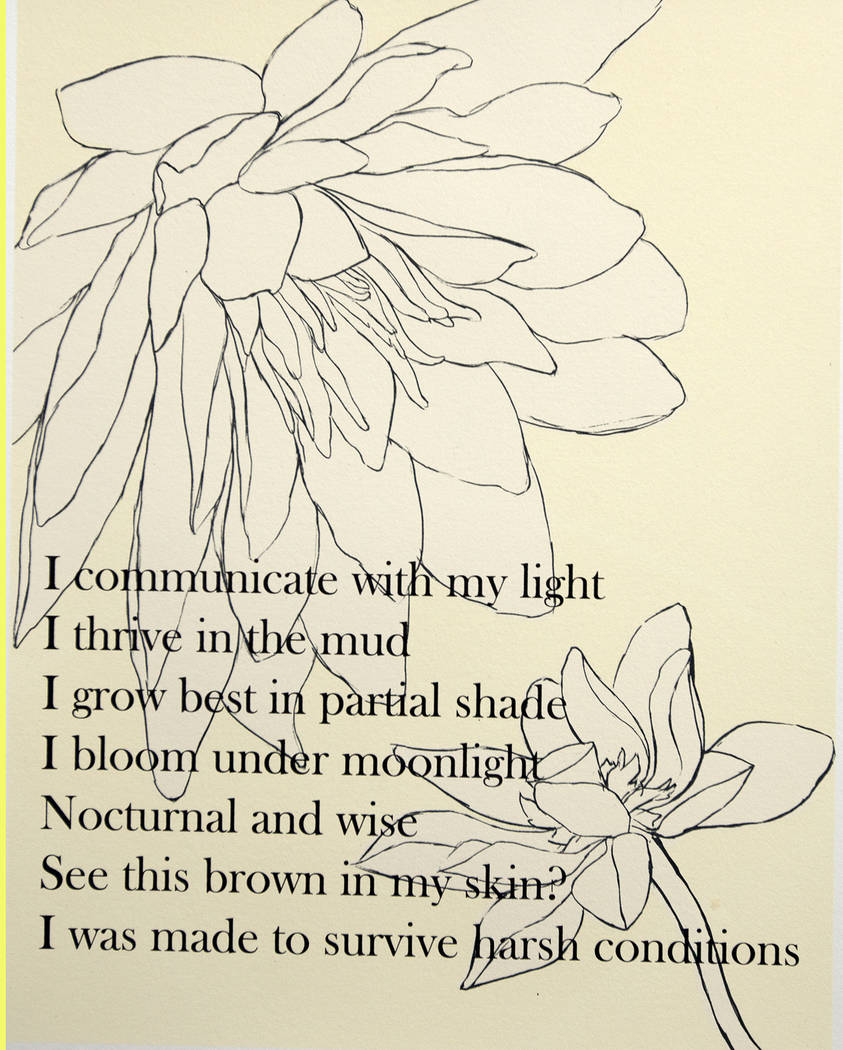 I communicate with my light
I thrive in the mud
I grow best in partial shade
I bloom under moonlight
Nocturnal and wise
See this brown in my skin?
I was made to survive harsh conditions